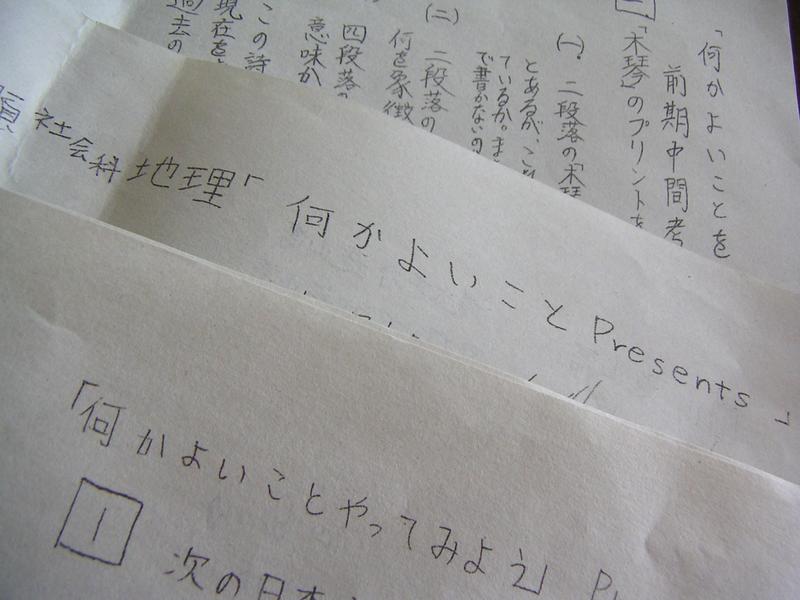 「何かよいことを
前期中間考
「木琴」のプリントを
(一) 二段落の「木琴
とあるが、これ
ているか。また
で書かないの
(二) 二段落の
何を象徴
四段落の
意味か
この詩
現在を
過去の
社会科 地理「何かよいこと Presents」
「何かよいことやってみよう」 Pr
1 次の日本